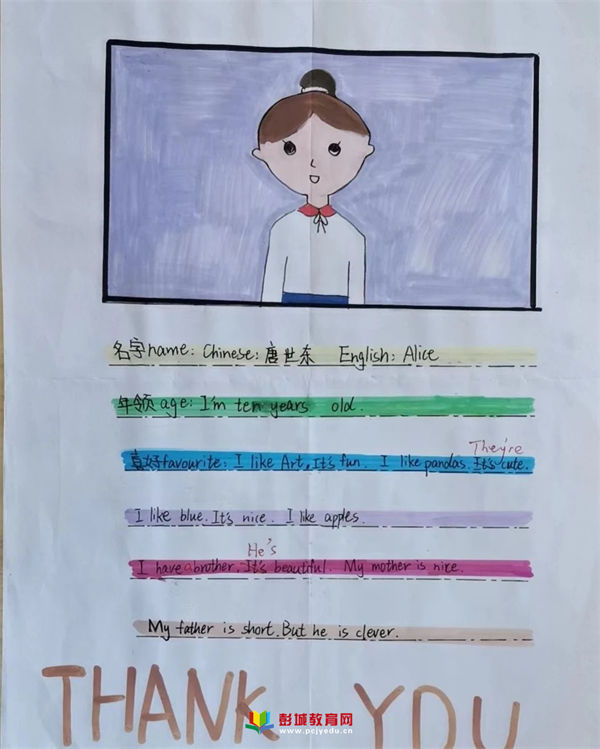 名字name: Chinese: 唐世东 English: Alice
年领age: I'm ten years old.
They're
喜好favourite: I like Art, It's fun. I like pandas. It's cute.
I like blue. It's nice. I like apples.
He's
I have a brother. It's beautiful. My mother is nice.
My father is short. But he is clever.
THANK YOU
彭城教育网
www.pcjyedu.cn